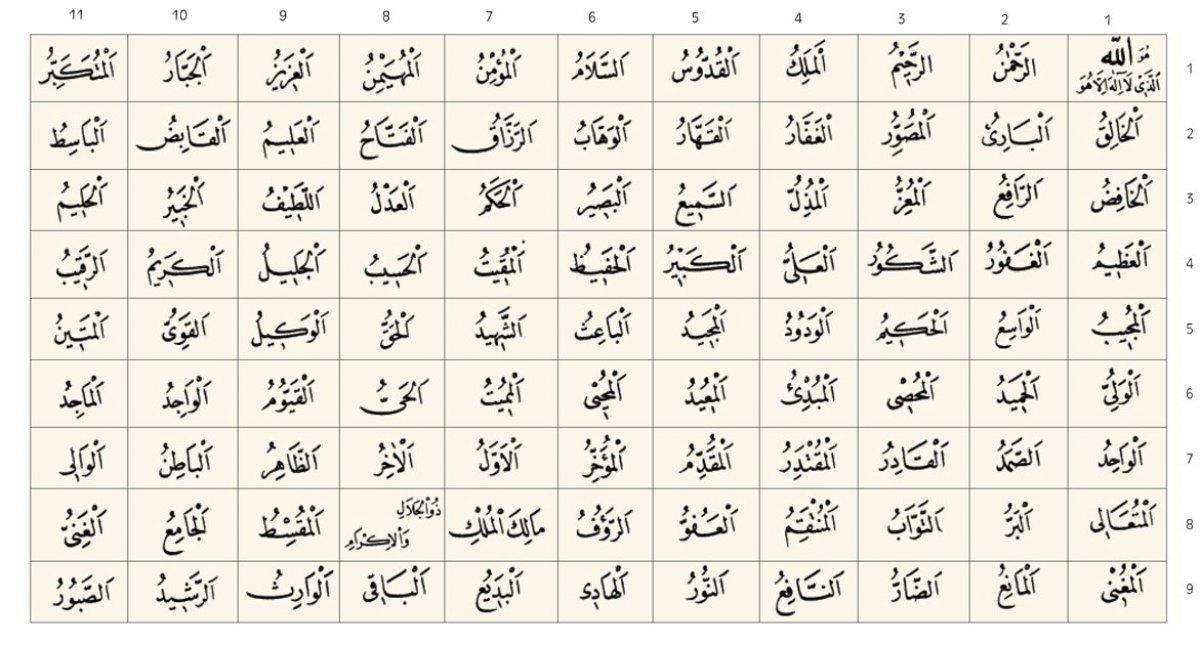 1 2 3 4 5 6 7 8 9 10 11
1 هُوَ اَللّٰهُ الَّذِي لَا اِلٰهَ اِلَّا هُوَ اَلرَّحْمٰنُ اَلرَّحِيْمُ اَلْمَلِكُ اَلْقُدُّوسُ اَلسَّلَامُ اَلْمُؤْمِنُ اَلْمُهَيْمِنُ اَلْعَزِيزُ اَلْجَبَّارُ اَلْمُتَكَبِّرُ
2 اَلْخَالِقُ اَلْبَارِئُ اَلْمُصَوِّرُ اَلْغَفَّارُ اَلْقَهَّارُ اَلْوَهَّابُ اَلرَّزَّاقُ اَلْفَتَّاحُ اَلْعَلِيمُ اَلْقَابِضُ اَلْبَاسِطُ
3 اَلْخَافِضُ اَلرَّافِعُ اَلْمُعِزُّ اَلْمُذِلُّ اَلسَّمِيعُ اَلْبَصِيرُ اَلْحَكَمُ اَلْعَدْلُ اَللَّطِيْفُ اَلْخَبِيرُ اَلْحَلِيمُ
4 اَلْعَظِيمُ اَلْغَفُورُ اَلشَّكُورُ اَلْعَلِىُّ اَلْكَبِيْرُ اَلْحَفِيظُ اَلْمُقِيتُ اَلْحَسِيبُ اَلْجَلِيلُ اَلْكَرِيمُ اَلرَّقِيبُ
5 اَلْمُجِيبُ اَلْوَاسِعُ اَلْحَكِيمُ اَلْوَدُودُ اَلْمَجِيدُ اَلْبَاعِثُ اَلشَّهِيدُ اَلْحَقُّ اَلْوَكِيلُ اَلْقَوِىُّ اَلْمَتِينُ
6 اَلْوَلِىُّ اَلْحَمِيدُ اَلْمُحْصِى اَلْمُبْدِئُ اَلْمُعِيدُ اَلْمُحْيِى اَلْمُمِيتُ اَلْحَىُّ اَلْقَيُّومُ اَلْوَاجِدُ اَلْمَاجِدُ
7 اَلْوَاحِدُ اَلصَّمَدُ اَلْقَادِرُ اَلْمُقْتَدِرُ اَلْمُقَدِّمُ اَلْمُؤَخِّرُ اَلْاَوَّلُ اَلْاٰخِرُ اَلظَّاهِرُ اَلْبَاطِنُ اَلْوَالِى
8 اَلْمُتَعَالِى اَلْبَرُّ اَلتَّوَّابُ اَلْمُنْتَقِمُ اَلْعَفُوُّ اَلرَّؤُفُ مَالِكُ الْمُلْكِ ذُوالْجَلَالِ وَالْاِكْرَامِ اَلْمُقْسِطُ اَلْجَامِعُ اَلْغَنِىُّ
9 اَلْمُغْنِى اَلْمَانِعُ اَلضَّارُّ اَلنَّافِعُ اَلنُّورُ اَلْهَادِى اَلْبَدِيعُ اَلْبَاقِى اَلْوَارِثُ اَلرَّشِيدُ اَلصَّبُورُ